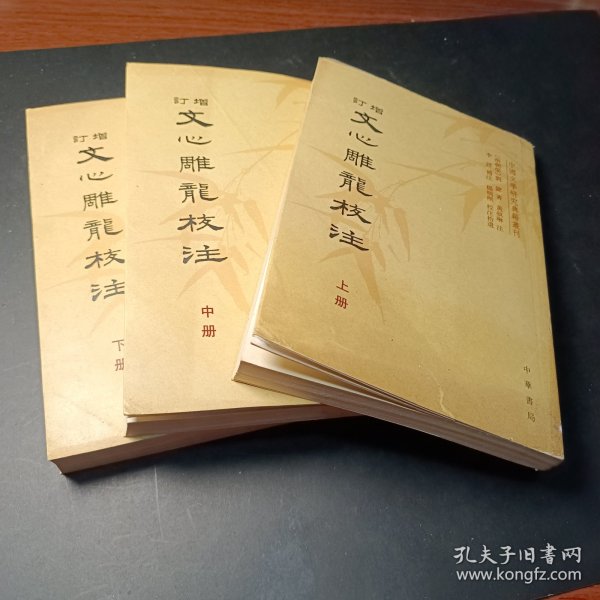 增訂
文心雕龍校注
上册
中國文學研究典籍叢刊
中華書局
增訂
文心雕龍校注
中册
增訂
文心雕龍校注
下册
孔夫子旧书网
www.kongfz.com